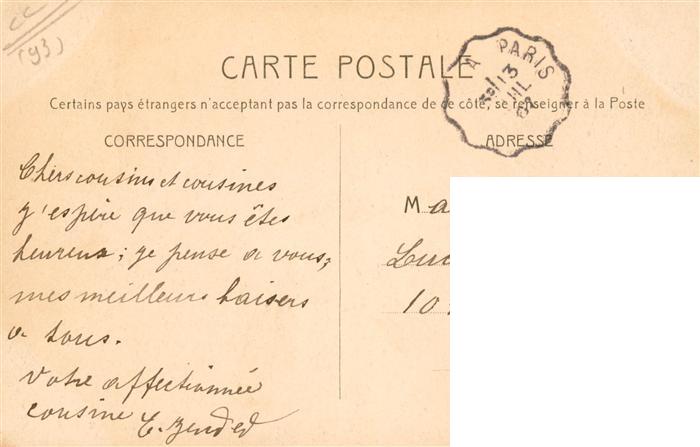 cc
(93)
CARTE POSTALE
A PARIS
13
JIL
Certains pays étrangers n'acceptent pas la correspondance de ce côté, se renseigner à la Poste
CORRESPONDANCE
Chers cousins et cousines
j'espère que vous êtes
heureux; je pense a vous,
mes meilleurs baisers
a tous.
Votre affectionnée
cousine E.
ADRESSE
Ma
Luc
10